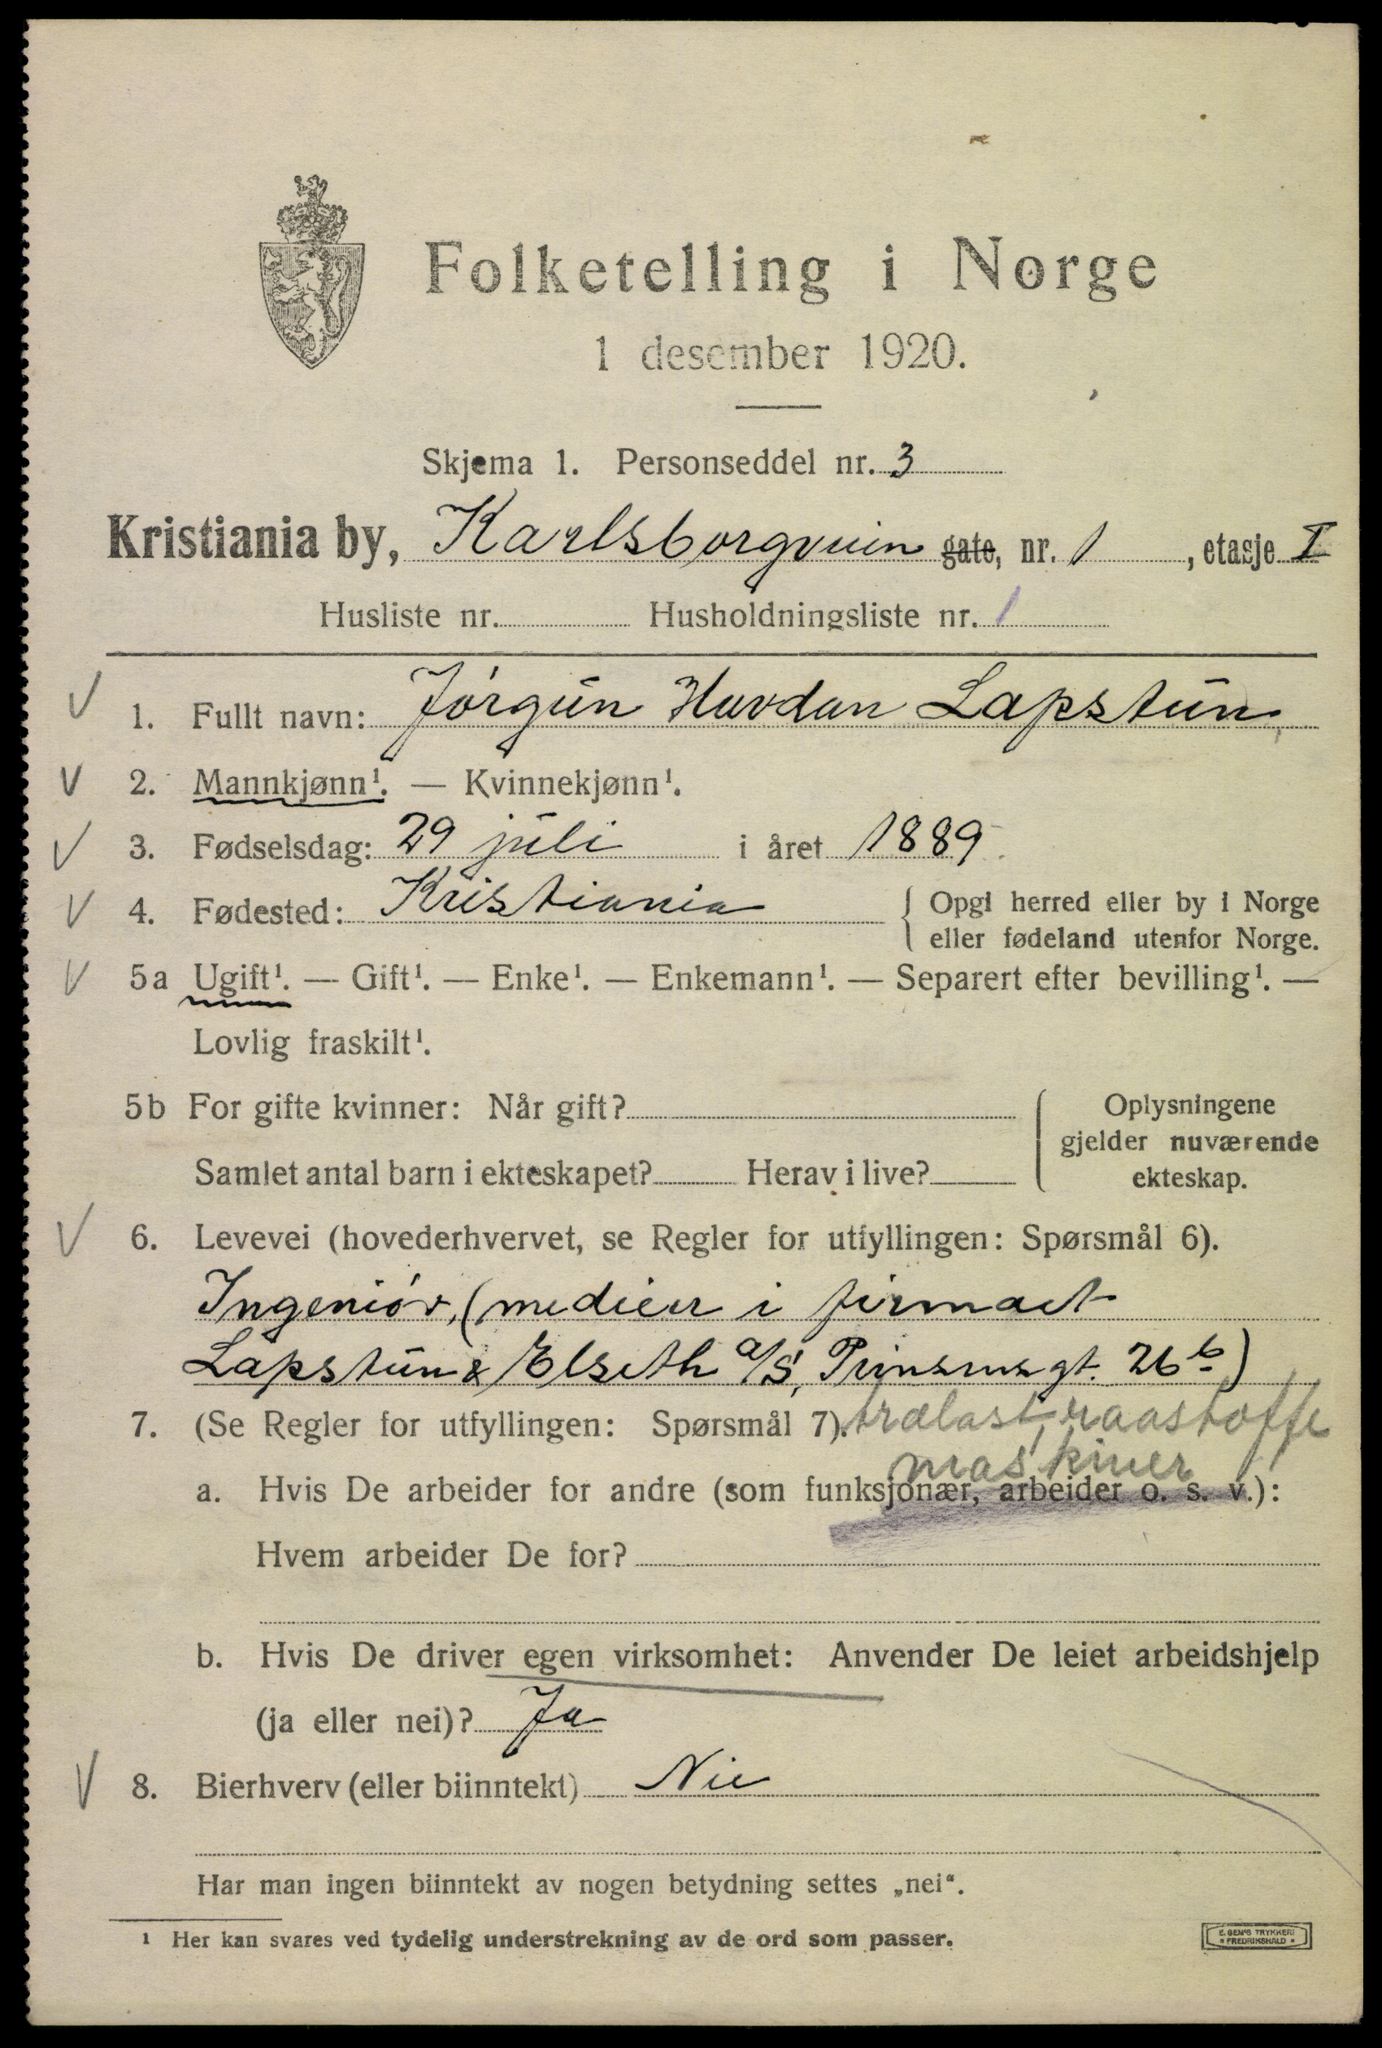 Folketelling i Norge
1 desember 1920.
Skjema 1. Personseddel nr. 3
Kristiania by, Karlsborgveien gate, nr. 1, etasje I
Husliste nr. Husholdningsliste nr. 1
1. Fullt navn: Jórgen Havdan Lapstun
2. Mannkjønn¹. — Kvinnekjønn¹.
3. Fødselsdag: 29 juli i året 1889
4. Fødested: Kristiania { Opgi herred eller by i Norge
eller fødeland utenfor Norge.
5a Ugift¹. — Gift¹. — Enke¹. — Enkemann¹. — Separert efter bevilling¹. —
Lovlig fraskilt¹.
5b For gifte kvinner: Når gift? { Oplysningene
gjelder nuværende
Samlet antal barn i ekteskapet? Herav i live? ekteskap.
6. Levevei (hovederhvervet, se Regler for utfyllingen: Spørsmål 6).
Ingeniór, (medeier i firmaet
Lapstun & Elseth a/s, Prinsensgt. 26b)
7. (Se Regler for utfyllingen: Spørsmål 7). trælast, raastoffe
maskiner
a. Hvis De arbeider for andre (som funksjonær, arbeider o. s. v.):
Hvem arbeider De for?
b. Hvis De driver egen virksomhet: Anvender De leiet arbeidshjelp
(ja eller nei)? Ja
8. Bierhverv (eller biinntekt) Nei
Har man ingen biinntekt av nogen betydning settes „nei“.
¹ Her kan svares ved tydelig understrekning av de ord som passer.
E. SEM'S TRYKKERI
FREDRIKSHALD